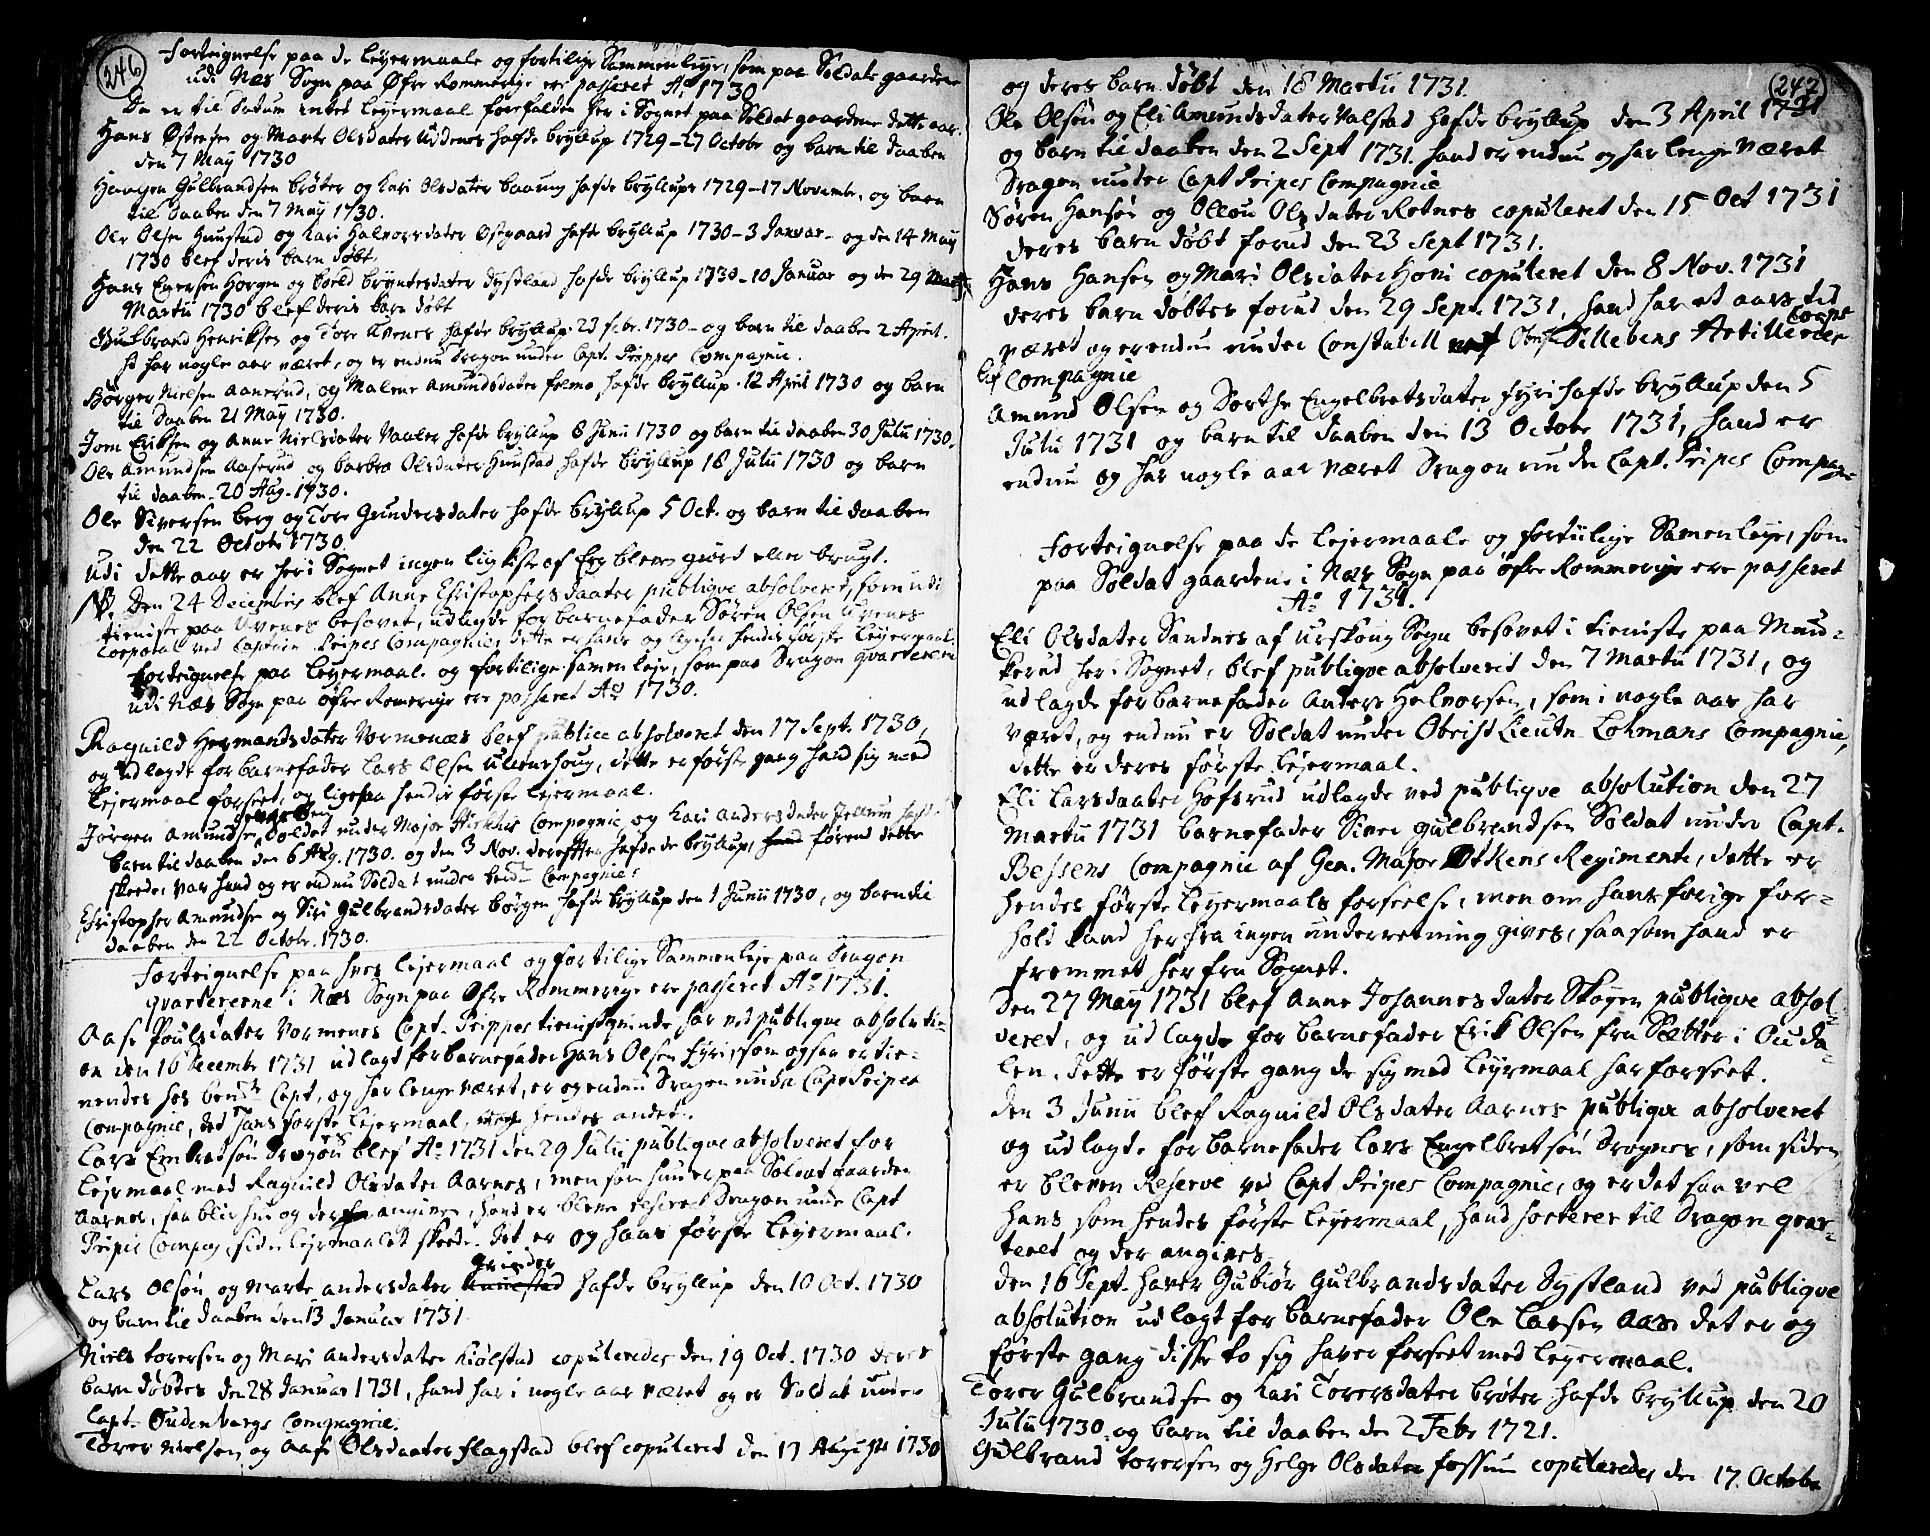 246
Forteignelse paa de Leyermaale og fortilige Sammenleye, som paa Soldate gaardene
udi Næs Sogn paa Øfre Rommerige ere passeret Ao 1730
Da er til Datum intet Leyermaal forefalden her i Sognet paa Soldat gaardene dette aar.
Hans Østensen og Marte Olsdater Uddenes hafde bryllup 1729-27 Octobr og barn til daaben
den 7 Maÿ 1730
Haagen Gulbrandsen brøter og Kari Olsdater baaung hafde bryllup 1729-17 Novembr. og barn
til daaben den 7 Maÿ 1730.
Ole Olsen Huustad og Kari Halvorsdater Østgaard hafde bryllup 1730-3 Januar- og den 14 Maÿ
1730 blef deris barn døbt.
Hans Enersen Horgen og bold bryntesdater Dystland hafde bryllup 1730-10 Januar og den 29
Martii 1730 blef deris barn døbt
Gulbrand Henriksen og Tore Avenes hafde bryllup 23 febr. 1730- og barn til daaben 2 April.
har nogle aar været, og er endnu Dragon under Capt. Pripps Compagnie.
Børger Nielsen Aanerud, og Malene Amundsdater hafde bryllup 12 April 1730 og barn
til daaben 21 Maÿ 1730.
Jom Eriksen og Anne Nielsdater Vaaler hafde bryllup 8 Junii 1730 og barn til daaben 30 Julii 1730.
Ole Amundsen Aaserud og barbra Olsdater Huustad hafde bryllup 18 Julii 1730 og barn
til daaben 20 Aug. 1730.
Ole Siversen berg og Tore Gundersdater hafde bryllup 5 Oct. og barn til daaben
den 22 Octobr 1730.
Udi dette aar er her i Sognet ingen ligkiste af Eeg bleven giord eller brugt.
NB. Den 24 Decembris blef Anne Christophersdaater publique absolveret, som udi
tieniste paa Avenes besovet, udlagde for barnefader Søren Olsen Avenes
Corporal ved Captein Pripes Compagnie, dette er hans og ligesaa hendes første Leyermaal.
Forteignelse paa Leyermaal og fortilige samenleje, som paa Dragon qvarteren
udi Næs Sogn paa øfre Romerige ere passeret Ao 1730.
Ragnild Hermandsdater Vormenæs blef publice absolveret den 17 Sept. 1730,
og udlagde for barnefader Lars Olsen Ullenshoug, dette er første gang hand sig med
Leiermaal forseet, og ligesaa hendis første leiermaal.
Jørgen Amundsen Soldat under Major Compagnie og Kari Andersdater Jellum hafde
barn til daaben den 6 Aug. 1730. og den 3 Nov. derefter hafde de bryllup, førend dette
skeede, var hand og er endnu Soldat under bemte Compagnie.
Christopher Amundsen og Siri Gulbrandsdater børgen hafde bryllup den 1 Junii 1730, og barn til
daaben den 22 Octobr. 1730.
Forteignelse paa hves Leiermaal og fortilige Sammenleje paa Dragon
qvartererne i Næs Sogn paa Øfre Rommerige ere passeret Ao 1731.
Aase Poulsdater Vormenes Capt. Prippes tienistqvinde har ved publique absoluti-
on den 16 Decembr 1731 udlagt for barnefader Hans Olsen Fyri, som ogsaa er tie-
nendes hos bemte Capt, og har lenge været, er og endnu Dragon under Capt Pripes
Compagnie, det hans første Leiermaal, hendes andet.
Lars Dragon blef Ao 1731 den 29 Julii publique absolveret for
Leiermaal med Ragnild Olsdater Aarnes, men som hun er paa Soldat gaarden
Aarnes, saa blir hun og der angiven, hand er bleven reserve Dragon under Capt
Pripis Compag, siden leyermaalet skeede. Det er og hans første Leyermaal.
Grinder
Lars Olsøn og Marte andersdater hafde bryllup den 10 Oct. 1730
og barn til daaben den 13 Januar 1731
Niels torersen og Mari Andersdater Kiølstad copuleredes den 19 Oct. 1730 deres
barn døbtes den 28 Januar 1731, hand har i nogle aar været og er Soldat under
Capt. Oudenbargs Compagnie.
Torer Nielsen og Aase Olsdaater flagstad blef copuleret den 17 Augusti 1730
247
og deres barn døbt den 18 Martii 1731.
Ole Olsøn og Eli Amundsdater Valstad hafde bryllup den 3 April 1731
og barn til daaben den 2 Sept 1731. hand er endnu og har lenge været
Dragon under Capt Pripes Compagnie
Søren Hansøn og Ollou Olsdater Rotnes copuleret den 15 Oct 1731
deres barn døbt forud den 23 Sept 1731.
Hans Hansen og Mari Olsdater Honi copuleret den 8 Nov. 1731
deres barn døbtes forud den 29 Sept. 1731, hand har et aars tid
været og er endnu under Constabell Tillebens Artillerie Corps
Compagnie
Amund Olsen og Dorthe Engelbretsdater Fyri hafde bryllup den 5
Julii 1731 og barn til daaben den 13 Octobr 1731, hand er
endnu og har nogle aar været Dragon under Capt. Pripes Compagn-
Forteignelse paa de Leiermaale og fortiilige Samenleje, som
paa Soldat gaardene i Næs Sogn paa øfre Rommerige ere passeret
Ao 1731.
Eli Olsdater Sandnes af Urskoug Sogn besovet i tieniste paa Mun-
kerud her i Sognet, blef publiqve absolverit den 7 Martii 1731, og
udlagde for barnefader Anders Halvorsen, som i nogle aar har
været, og endnu er Soldat under Obrist Lieutn. Lohmans Compagnie,
dette er deres første Leiermaal.
Eli Larsdaater Hofsrud udlagde ved publique absolution den 27
Martii 1731 barnefader Siver Gulbrandsen Soldat under Capt.
Bessens Compagnie af Gen. Major Otkens Regimente, dette er
hendes første Leyermaals forseelse, men om hans forige for-
hold kand her fra ingen underretning gives, saasom hand er
fremmet her fra Sognet.
Den 27 Maÿ 1731 blef Anne Johannesdater Skogen publique absol-
veret, og udlagde for barnefader Erik Olsen fra Sætter i Ouda-
len. dette er første gang de sig med Leyrmaal har forseet.
den 3 Junii blef Ragnild Olsdater Aarnes publique absolveret
og udlagde for barnefader Lars Engelbretsøn Drognes, som siden
er bleven Reserve ved Capt Pripes Compagnie, og er det saa vel
hans som hendes første Leyermaal, hand sorterer til Dragon qvar-
teret og der angives.
Den 16 Sept. haver Gubiør Gulbrandsdater Dystland ved publique
absolution udlagt for barnefader Ole Larsen Aas. det er og
første gang disse to sig haver forseet med Leyermaal.
Torer Gulbrandsen og Kari Torersdater brøter hafde bryllup den 20
Julii 1730 og barn til daaben den 2 Febr 1721.
Gulbrand torersen og Helge Olsdater fossum copuleredes den 17. Octobr